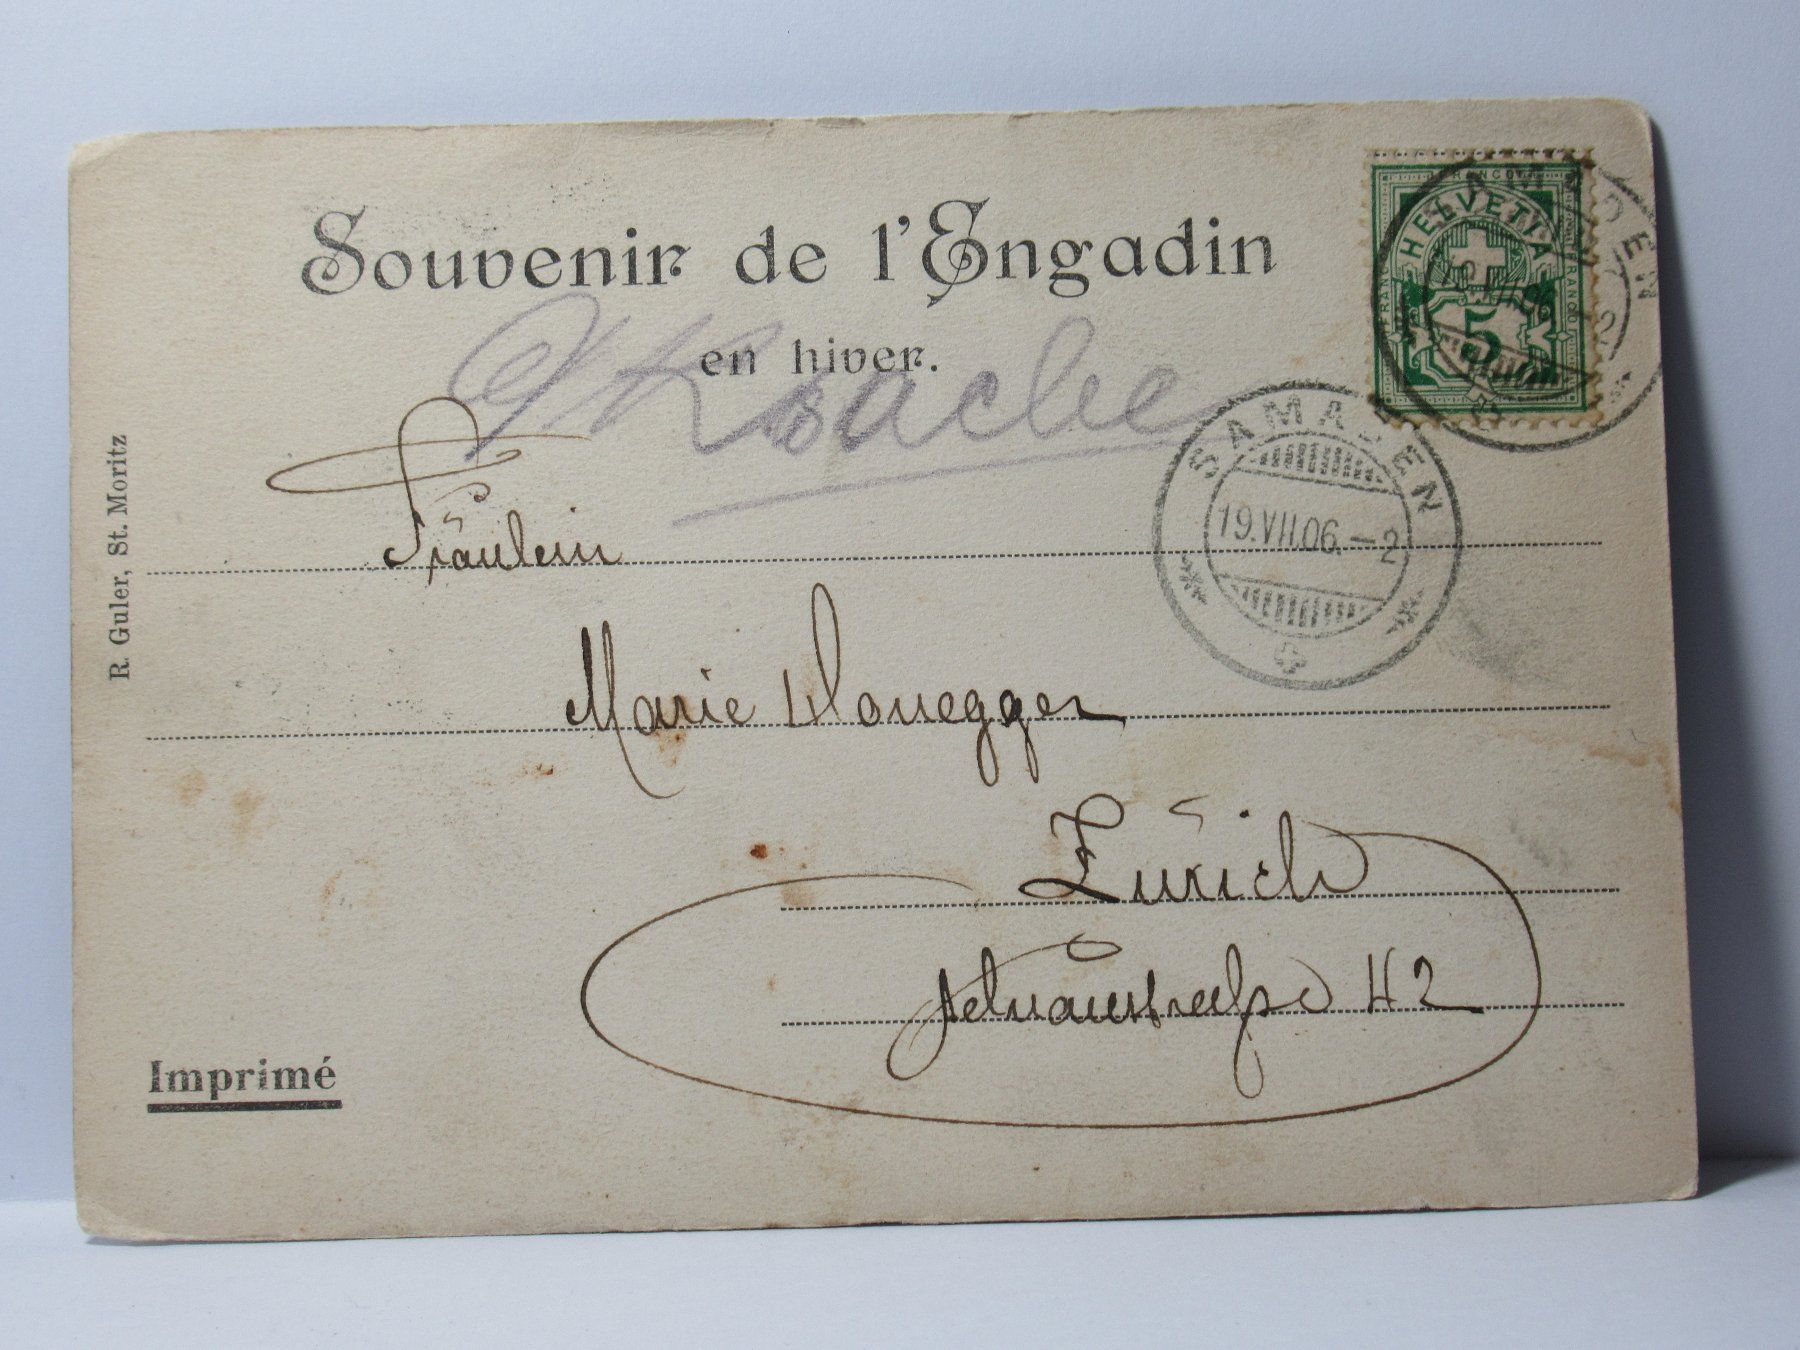 Souvenir de l'Engadin
en hiver.
FRANCO
HELVETIA
FRANCO
FRANCO
5
SAMADEN
SAMADEN
19.VII.06.-2
R. Guler, St. Moritz
Fräulein
Marie Honegger
Zürich
42
Imprimé